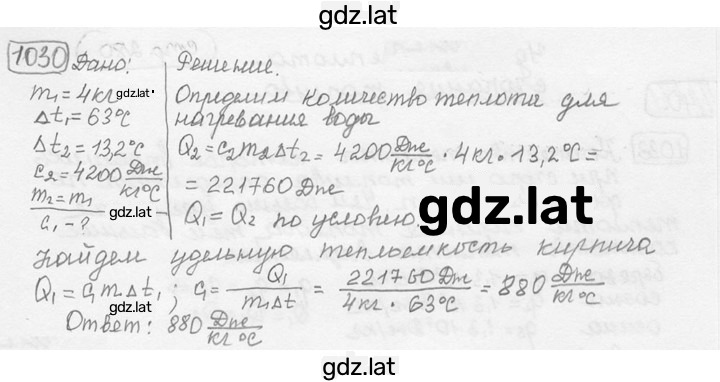 gdz.lat
1030 Дано: Решение.
m₁ = 4 кг gdz.lat
Δt₁ = 63°C
Δt₂ = 13,2°C
c₂ = 4200 Дж/кг°C
m₂ = m₁
c₁ - ? gdz.lat
Определим количество теплоты для
нагревания воды
Q₂ = c₂m₂Δt₂ = 4200 Дж/кг°C · 4 кг · 13,2°C =
= 221760 Дж
Q₁ = Q₂ по условию
gdz.lat
Найдем удельную теплоемкость кирпича
Q₁ = c₁m₁Δt₁; c₁ = Q₁/m₁Δt = 221760 Дж/4 кг · 63°C = 880 Дж/кг°C
gdz.lat
Ответ: 880 Дж/кг°C
gdz.lat